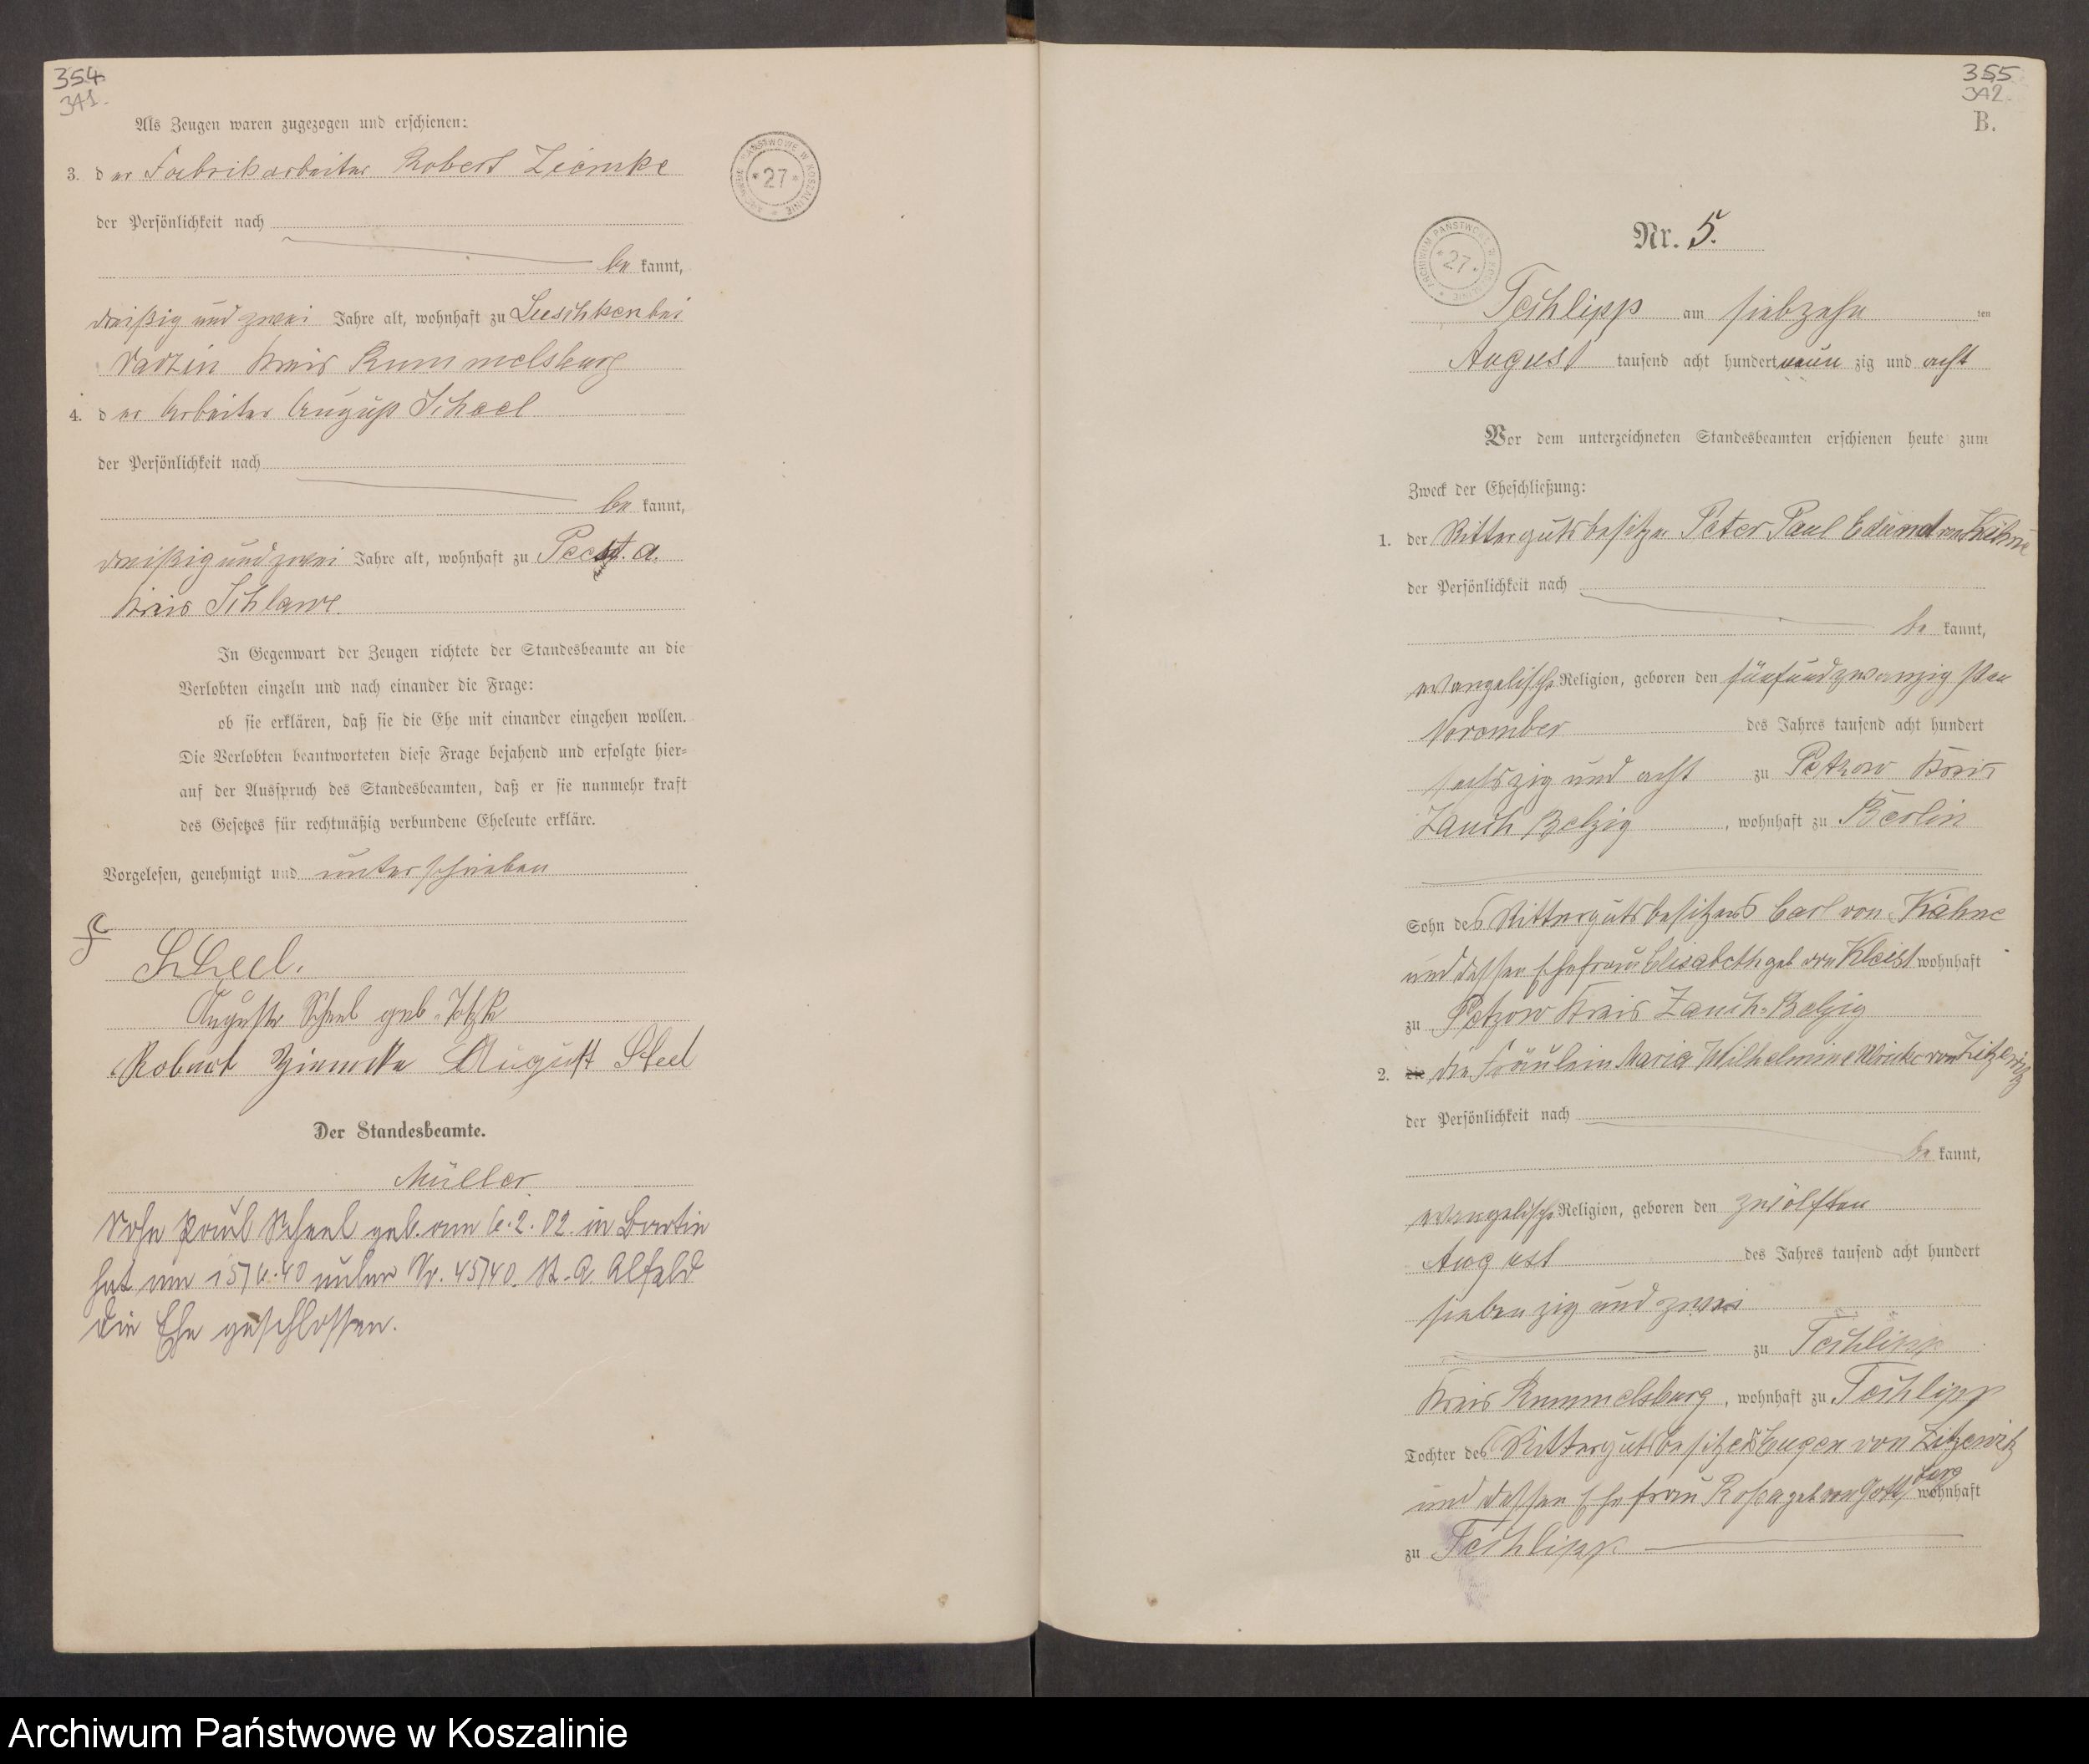 354.
341.
Als Zeugen waren zugezogen und erschienen:
3. der Fabrikarbeiter Robert Ziemke
der Persönlichkeit nach
be kannt,
dreißig und zwei Jahre alt, wohnhaft zu Luschken bei
Varzin Kreis Rummelsburg
4. der Arbeiter August Scheel
der Persönlichkeit nach
be kannt,
dreißig und zwei Jahre alt, wohnhaft zu
Kreis Schlawe.
In Gegenwart der Zeugen richtete der Standesbeamte an die
Verlobten einzeln und nach einander die Frage:
ob sie erklären, daß sie die Ehe mit einander eingehen wollen.
Die Verlobten beantworteten diese Frage bejahend und erfolgte hier=
auf der Ausspruch des Standesbeamten, daß er sie nunmehr kraft
des Gesetzes für rechtmäßig verbundene Eheleute erkläre.
Vorgelesen, genehmigt und unterschrieben
Scheel.
Auguste Scheel geb.
Robert Ziemke August Scheel
Der Standesbeamte.
Müller
Sohn Paul Scheel geb. am 6.2.02. in Bartin
hat am unter Nr. 45/40. St. A. Alfeld
die Ehe geschlossen.
ARCHIWUM PAŃSTWOWE W KOSZALINIE
* 27 *
355
342.
B.
ARCHIWUM PAŃSTWOWE W KOSZALINIE
* 27 *
Nr. 5.
Techlipp am siebzehn ten
August tausend acht hundert neun zig und acht
Vor dem unterzeichneten Standesbeamten erschienen heute zum
Zweck der Eheschließung:
1. der Rittergutsbesitzer Peter Paul Eduard von Kähne
der Persönlichkeit nach
be kannt,
evangelische Religion, geboren den fünfundzwanzigsten
November des Jahres tausend acht hundert
sechszig und acht zu Petzow Kreis
Zauch Belzig, wohnhaft zu Berlin
Sohn des Rittergutsbesitzers Carl von Kähne
und dessen Ehefrau Elisabeth geb von Kleist wohnhaft
zu Petzow Kreis Zauch-Belzig
2. die die Fräulein Maria Wilhelmine Ulrike von Zitzewitz
der Persönlichkeit nach
be kannt,
evangelische Religion, geboren den zwölften
August des Jahres tausend acht hundert
siebenzig und zwei
zu Techlipp
Kreis Rummelsburg, wohnhaft zu Techlipp
Tochter des Rittergutsbesitzers Eugen von Zitzewitz
und dessen Ehefrau Rosa geb von Gottberg wohnhaft
zu Techlipp
Archiwum Państwowe w Koszalinie